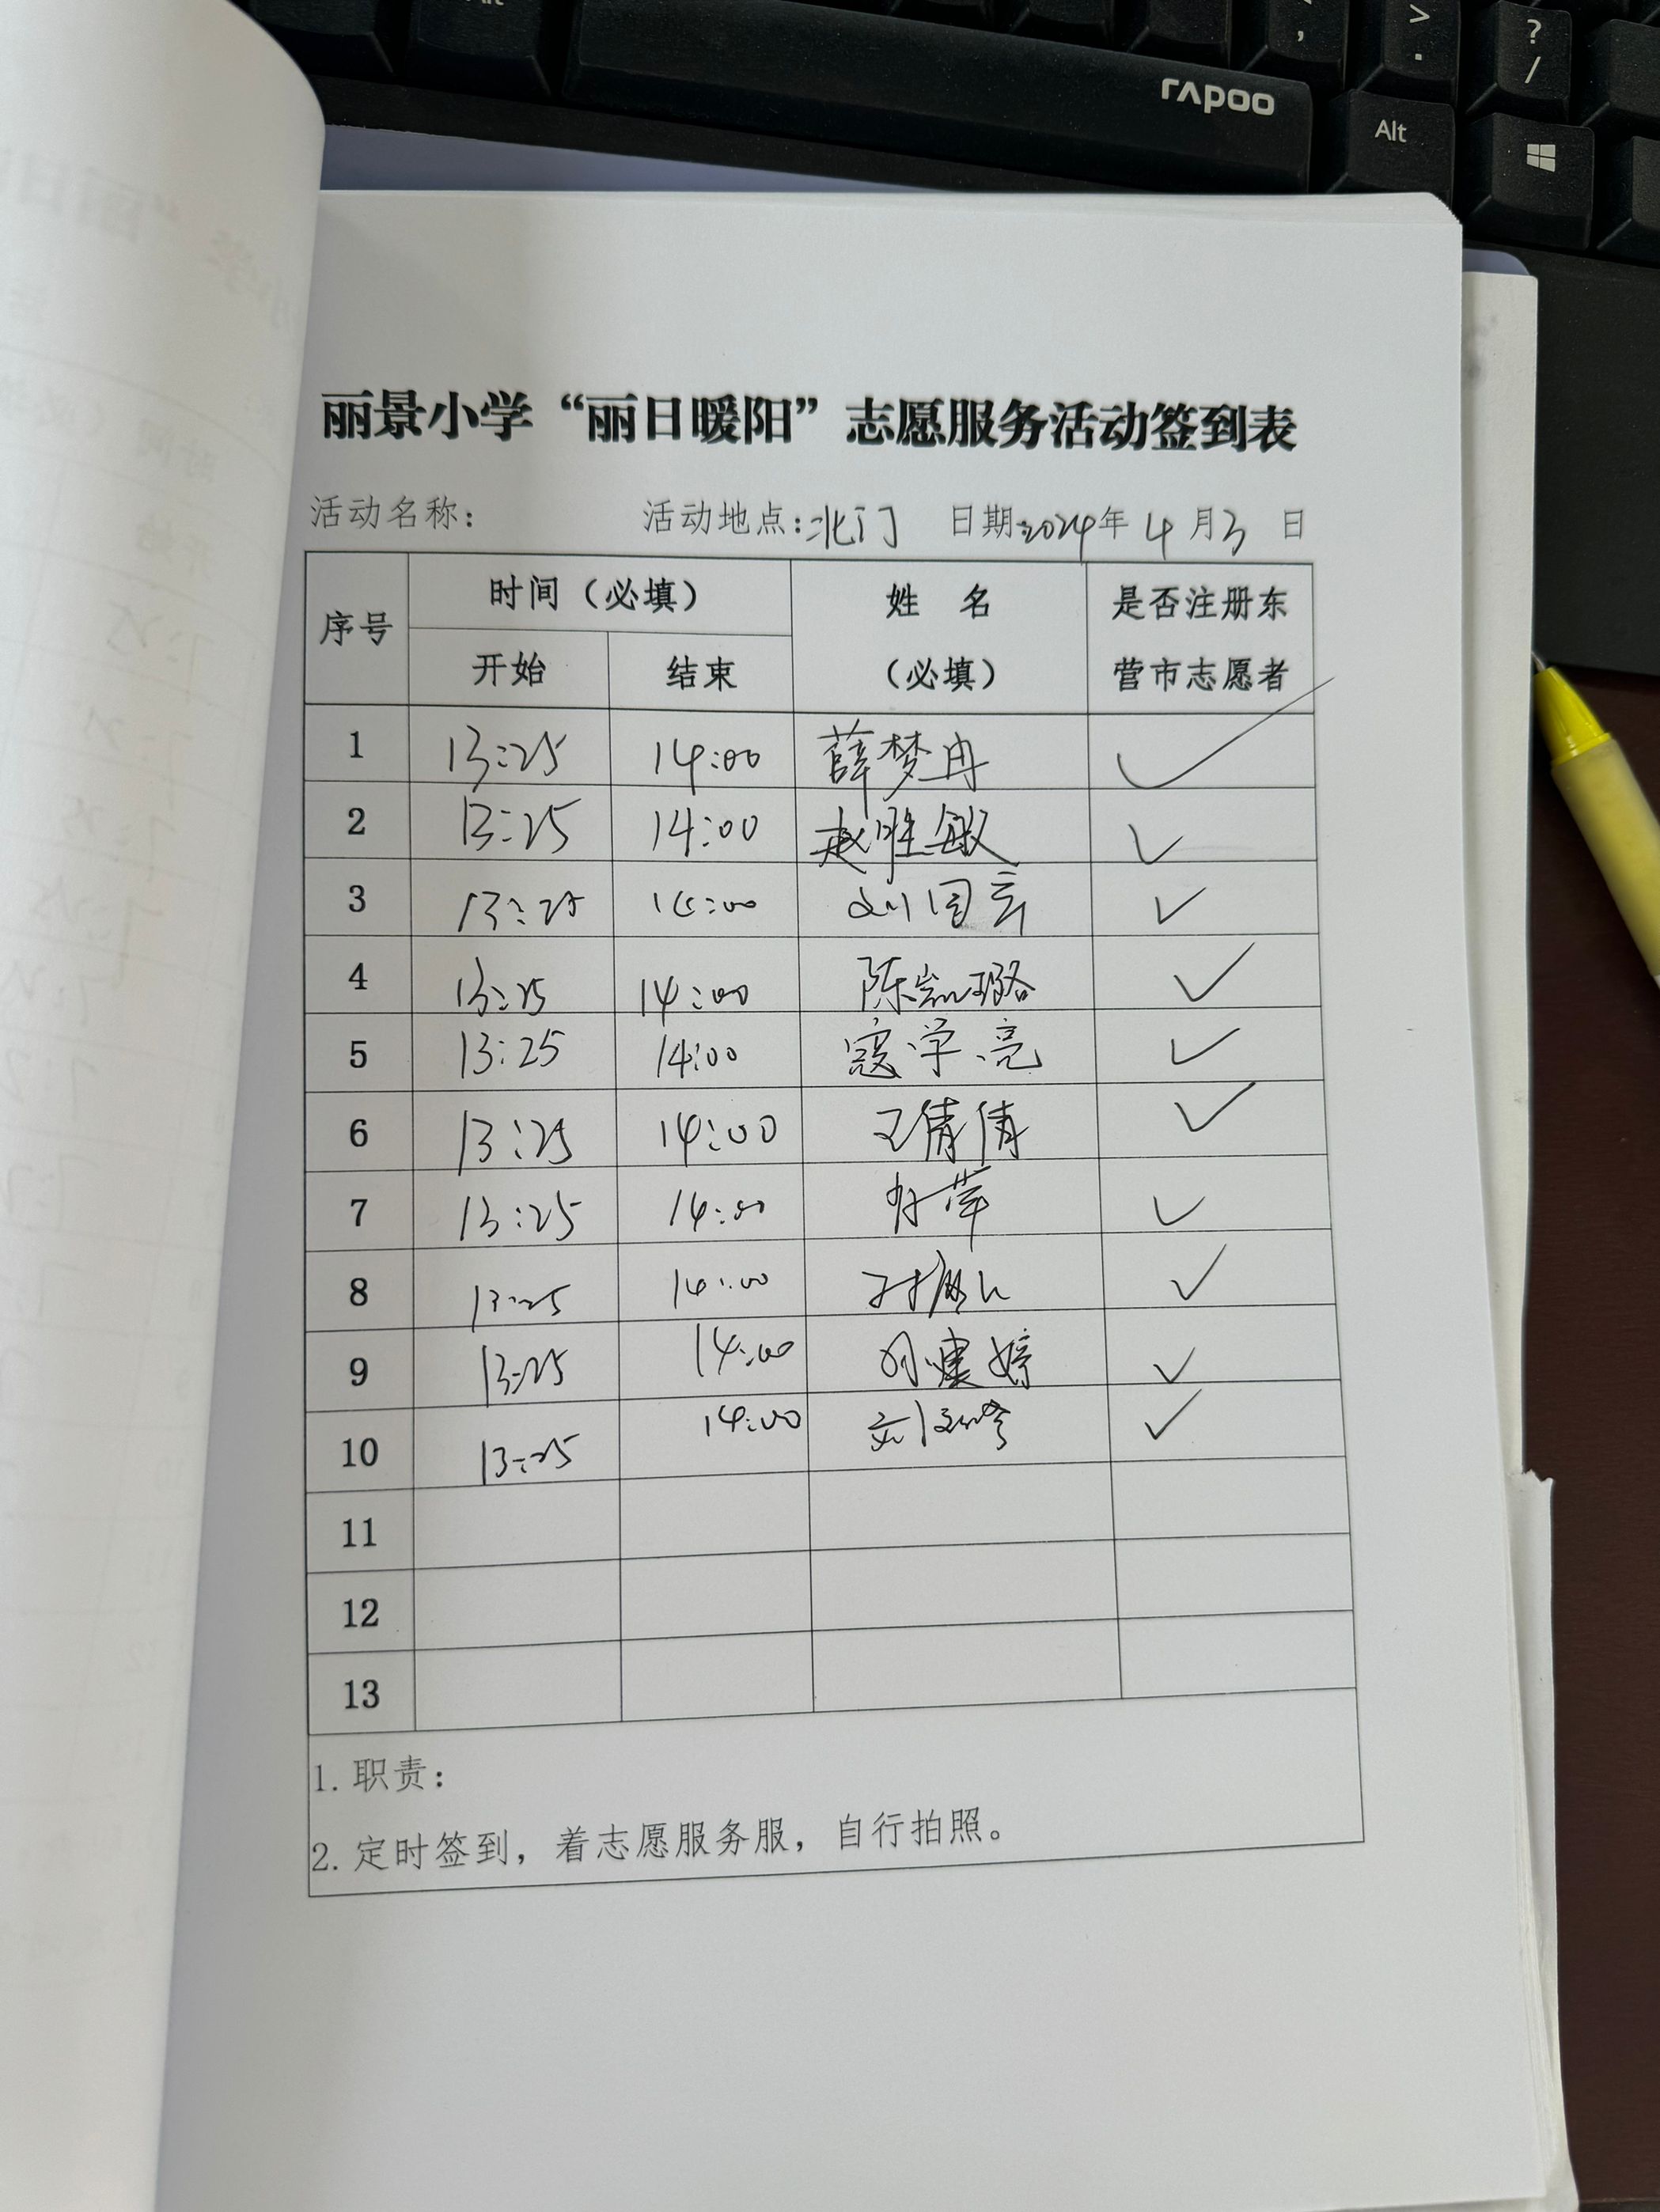 Alt
,
>
.
?
/
rapoo
Alt
丽景小学“丽日暖阳”志愿服务活动签到表
活动名称： 活动地点：北门 日期：2024年4月3日
序号 时间（必填） 姓 名 是否注册东
开始 结束 （必填） 营市志愿者
1 13:25 14:00 薛梦冉 ✓
2 13:25 14:00 赵胜敏 ✓
3 13:25 14:00 ✓
4 13:25 14:00 陈凯璐 ✓
5 13:25 14:00 寇学亮 ✓
6 13:25 14:00 王倩倩 ✓
7 13:25 14:00 ✓
8 13:25 14:00 ✓
9 13:25 14:00 ✓
10 13:25 14:00 ✓
11
12
13
1. 职责：
2. 定时签到，着志愿服务服，自行拍照。